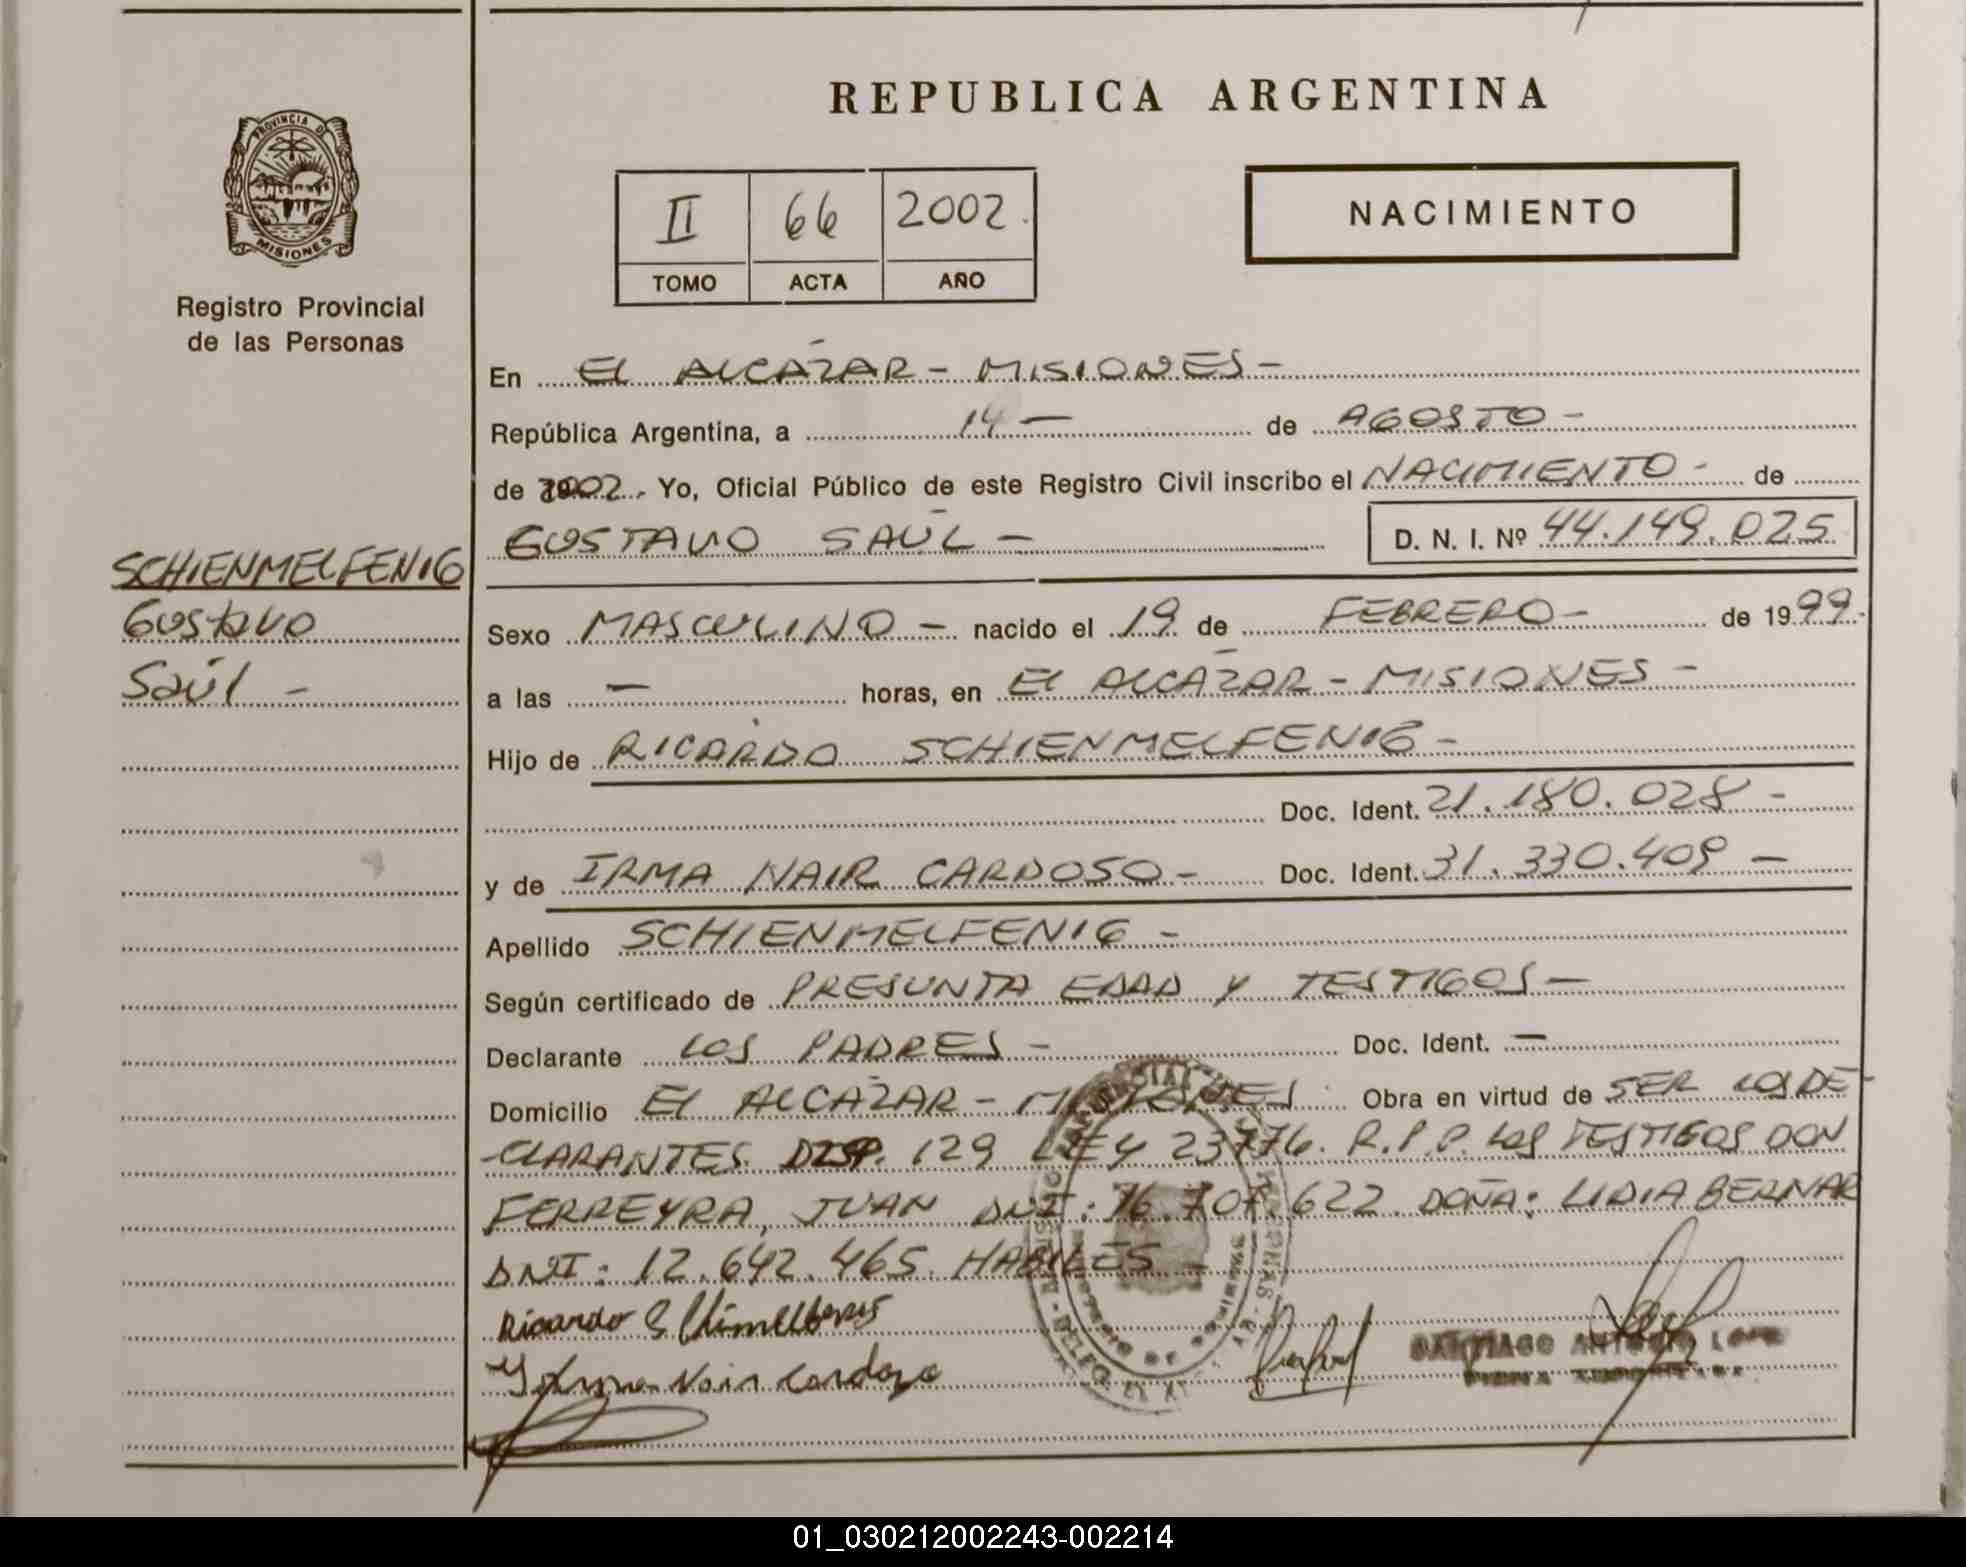 REPUBLICA ARGENTINA
PROVINCIA DE
MISIONES
Registro Provincial
de las Personas
II 66 2002
TOMO ACTA AÑO
NACIMIENTO
En EL ALCAZAR - MISIONES -
República Argentina, a 14 - de AGOSTO -
de 2002. Yo, Oficial Público de este Registro Civil inscribo el NACIMIENTO - de
GUSTAVO SAÚL - D. N. I. Nº 44.149.025
SCHIENMELFENIG
Gustavo
Saúl -
Sexo MASCULINO - nacido el 19 de FEBRERO - de 1999.
a las - horas, en El ALCAZAR - MISIONES -
Hijo de RICARDO SCHIENMELFENIG -
Doc. Ident. 21.180.028 -
y de IRMA NAIR CARDOSO - Doc. Ident. 31.330.409 -
Apellido SCHIENMELFENIG -
Según certificado de PRESUNTA EDAD Y TESTIGOS -
Declarante LOS PADRES - Doc. Ident. -
Domicilio El ALCAZAR - MISIONES Obra en virtud de SER LOS DE-
CLARANTES. DISP. 129 LEY 23776. R.P.P. LOS TESTIGOS DON
FERREYRA, JUAN DNI: 16.707.622 DOÑA: LIDIA BERNAR
DNI: 12.642.465. HABILES -
Ricardo
Nair Cardozo
SANTIAGO ANTONIO
01_030212002243-002214